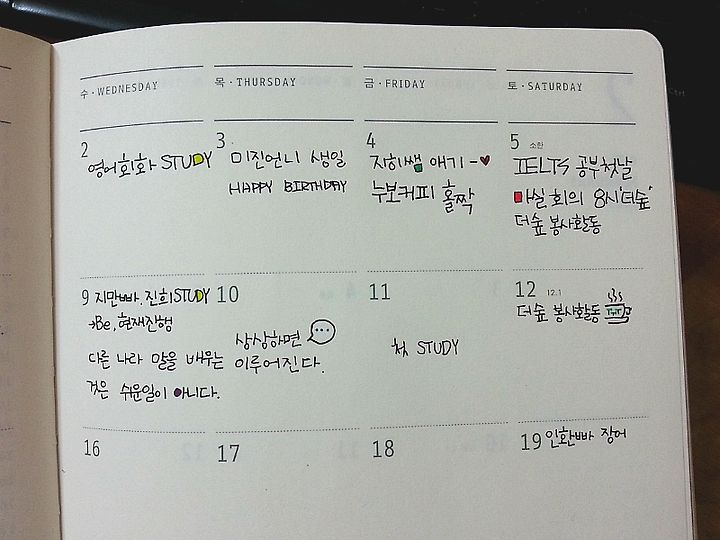 수·WEDNESDAY
목·THURSDAY
금·FRIDAY
토·SATURDAY
2
영어회화 STUDY
3
미진언니 생일
HAPPY BIRTHDAY
4
지희쌤 얘기-♥
누보커피 홀짝
5 소한
IELTS 공부첫날
마실 회의 8시'더숲'
더숲 봉사활동
9 지만빠, 진희STUDY
→Be, 현재진행
다른 나라 말을 배우는
것은 쉬운일이 아니다.
10
상상하면
이루어진다.
11
첫 STUDY
12 12.1
더숲 봉사활동
16
17
18
19 인환빠 장어